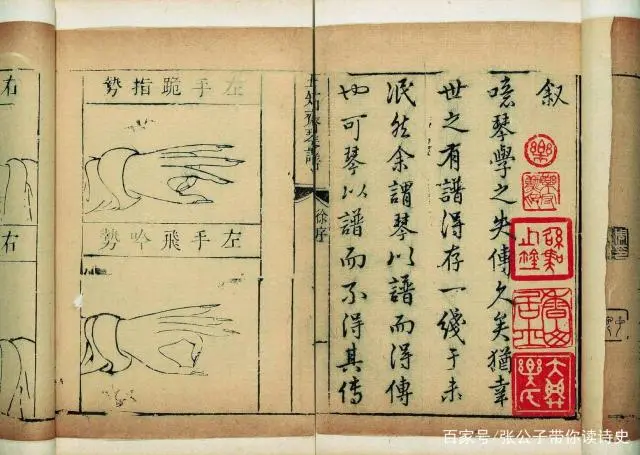 叙
噫琴学之失傳久矣猶幸
世之有譜得存一綫于未
泯然余謂琴以譜而得傳
也可琴以譜而不得其傳
徐序
左手跪指勢
左手飛吟勢
右
右
百家号/张公子带你读诗史